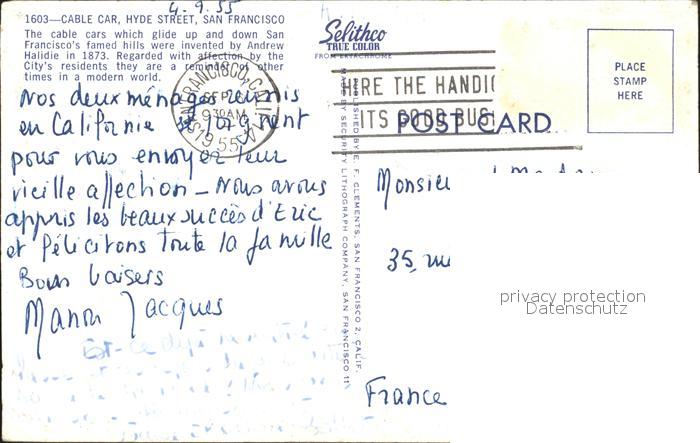 4.9.55
1603—CABLE CAR, HYDE STREET, SAN FRANCISCO
The cable cars which glide up and down San
Francisco's famed hills were invented by Andrew
Halidie in 1873. Regarded with affection by the
City's residents they are a reminder of other
times in a modern world.
Nos deux ménages réunis
en Californie se joignent
pour vous envoyer leur
vieille affection – Nous avons
appris les beaux succès d'Eric
et félicitons toute la famille
Bons baisers
Manon Jacques
Est-ce déjà
Selithco
TRUE COLOR
FROM EKTACHROME
SAN FRANCISCO, CALIF.
SEP
930AM
1955
HIRE THE HANDIC
ITS GOOD BUSI
POST CARD
PLACE
STAMP
HERE
PUBLISHED BY E. F. CLEMENTS, SAN FRANCISCO 2, CALIF.
MADE BY SECURITY LITHOGRAPH COMPANY, SAN FRANCISCO 11
Monsieu
35, rue
France
privacy protection
Datenschutz